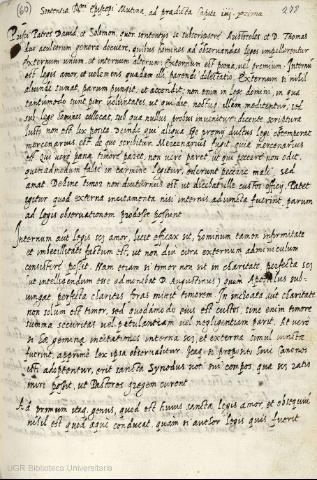 (60) Sententia Rmi Episcopi Mutinæ, ad prædicta Capita
278
Patres David, et Salomon, quor sententijs se subscripsere Aristoteles et D. Thomas
duo stimulorum genera docuere, quibus homines ad observandas leges impellerentur
Externum unum, et internum alterum: Externum est pœna, vel præmium. Internum
est legis amor, et volentis quædam illi parendi delectatio. Externum si nihil
aliunde sumat, parum pungit, et accendit, non enim in lege domini, in qua
tantummodo sunt pior voluntates, ut qui die, noctuque illam meditentur, sed
sub lege homines collocat, sub qua nullus probus invenitur, docente scriptura
iusto non est lex posita. Deinde qui aliqua spe præmij ductus legi obtemperat
mercenarius est de quo scribitur. Mercenarius fugit, quia mercenarius
est qui vero pœnæ timore paret, non vere paret, ut qui peccare non odit,
quemadmodum oderunt peccare mali, sed
amat. Denique timor non diuturnus est ut dicebat ille custos officij. Patet
igitur quod externa incitamenta nisi internis adiuncta fuerint, parum
ad legis observationem prodesse possunt.
Internum aut legis scz amor, licet efficax sit, hominum tamen infirmitate
et imbecillitate factum est, ut non diu citra externum adminiculum
consistere possit. Nam etiam si timor non sit in claritate, perfecta scz
ut intelligendum esse admonebat D. Augustinus) quum Apostolus sub-
iungat perfecta claritas foras mittit timorem. In inchoata aut claritate
non solum est timor, sed quodam odo eius est custos, sine enim timore
summa securitas vel petulantiam vel negligentiam parit. At vero
si hæc gemina incitamenta interna scz, et externa simul iuncta
fuerint, apprime lex ipsa observabitur. Quæ in propositi sint Canones
isti adoptentur, erit sancta Synodus voti sui compos, quæ scz satis
inivi possit, ut Pastores gregem curent.
Ad primum itaq genus, quod est huius sanctæ legis amor, et obsequium
nihil est quod æque conducat, quam si author legis quis fuerit
UGR Biblioteca Universitaria